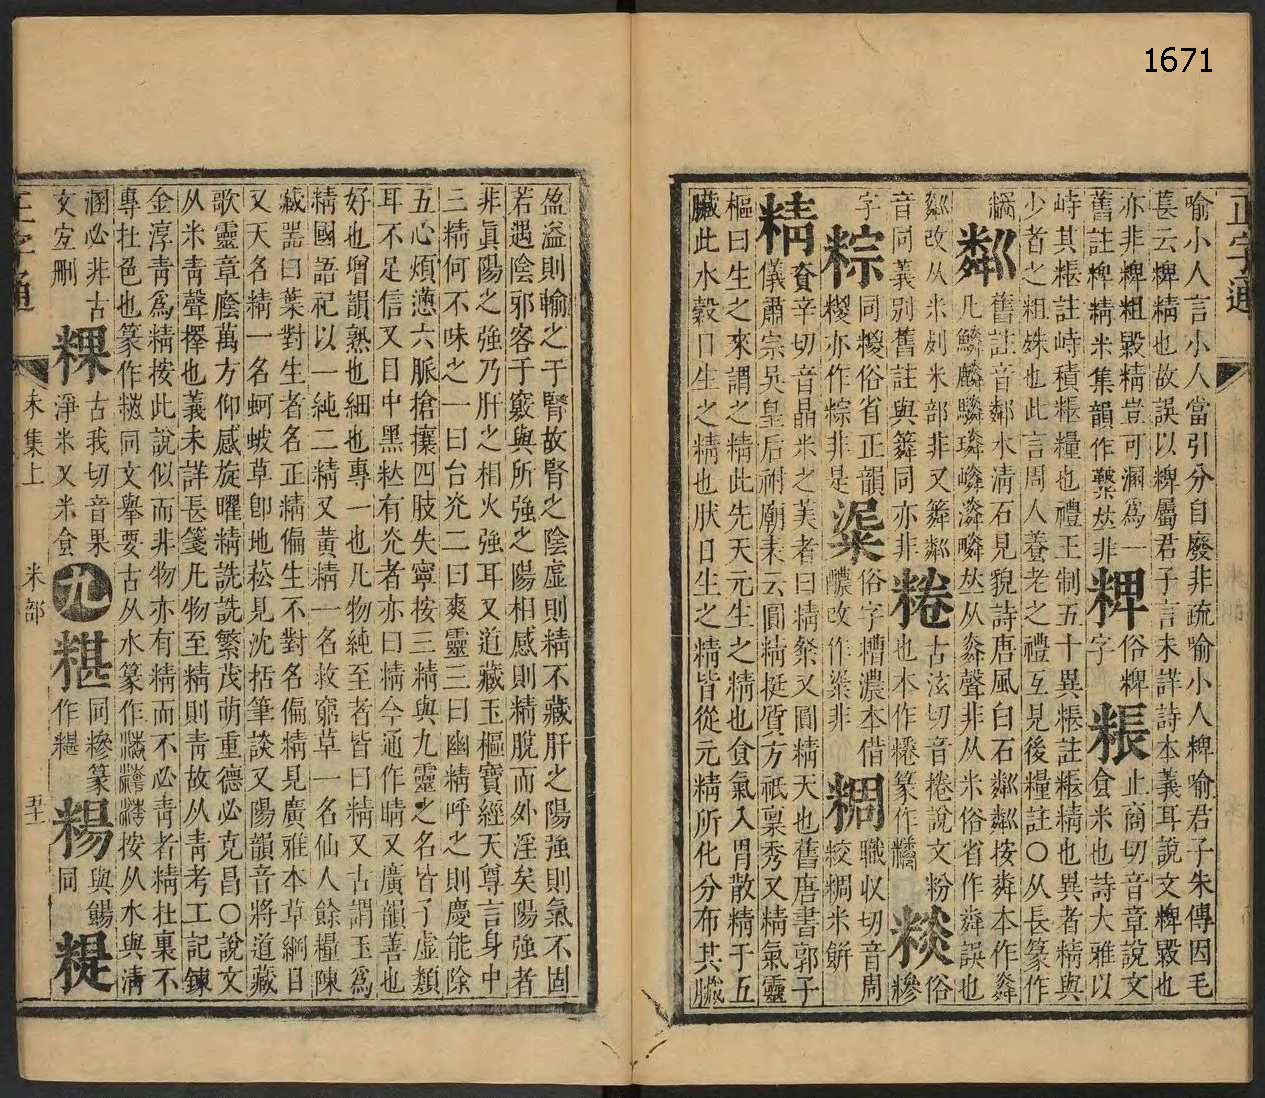 1671
正字通
喻小人言小人當引分自廢非疏喻小人粺喻君子朱傳因毛
萇云粺精也故誤以粺屬君子言未詳詩本義耳說文粺毇也
亦非粺粗毇精豈可溷爲一 粺 俗粺字
舊註粺精米集韻作 非 粻 止商切音章說文食米也詩大雅以
峙其粻註峙積粻糧也禮王制五十異粻註粻精也異者精與
少者之粗殊也此言周人養老之禮互見後糧註○从長篆作
粼 舊註音鄰水清石見貌詩唐風白石粼粼按粦本作㷠
凡鱗麟驎璘嶙潾疄丛从㷠聲非从米俗省作粦誤也
粼改从米列米部非又粦粼 棬 古泫切音捲說文粉也本作 篆作 俗糝
音同義別舊註與粦同亦非
字 粽 同糉俗省正韻糉亦作粽非是 俗字糟濃本借醲改作 非 粡 職收切音周絞粡米餅
精 資辛切音晶米之美者曰精粲又圓精天也舊唐書郭子
儀肅宗吳皇后祔廟表云圓精挺質方祇稟秀又精氣靈
樞曰生之來謂之精此先天元生之精也食氣入胃散精于五
臟此水穀日生之精也狀日生之精皆從元精所化分布其臟
盈溢則輸之于腎故腎之陰虛則精不藏肝之陽強則氣不固
若遇陰邪客于竅與所強之陽相感則精脫而外淫矣陽強者
非眞陽之強乃肝之相火強耳又道藏玉樞寶經天尊言身中
三精何不味之一曰台光二曰爽靈三曰幽精呼之則慶能除
五心煩懣六脈搶攘四肢失寧按三精與九靈之名皆子虛類
耳不足信又目中黑粏有光者亦曰精今通作睛又廣韻善也
好也增韻熟也細也專一也凡物純至者皆曰精又古謂玉爲
精國語祀以一純二精又黃精一名救窮草一名仙人餘糧陳
藏器曰葉對生者名正精偏生不對名偏精見廣雅本草綱目
又天名精一名蚵蚾草卽地菘見沈括筆談又陽韻音將道藏
歌靈章廕萬方仰感旋曜精詵詵繁茂萌重德必克昌○說文
从米青聲擇也義未詳長箋凡物至精則靑故从靑考工記鍊
金淳靑爲精按此說似而非物亦有精而不必靑者精在裏不
專在色也篆作 同文舉要古从水篆作 按从水與淸
溷必非古文宜刪 粿 古我切音果淨米又米食 九 糂 同糝篆作糂 粯 與餳同 糃
正字通
未集上
米部
五十一